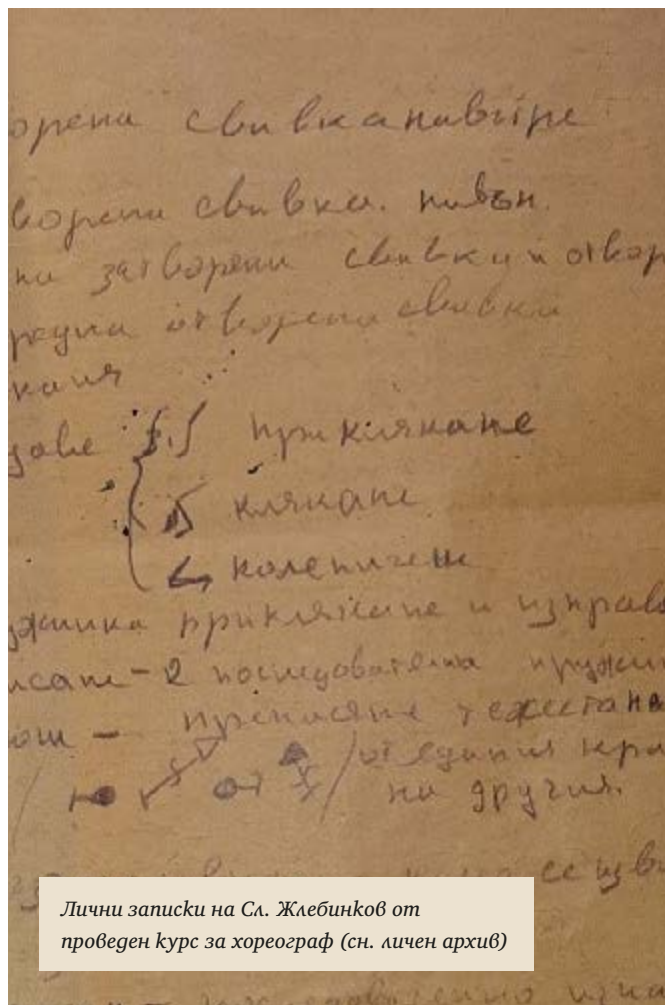 орена свивка навътре
ворени свивки. навън.
ни затворени свивки и отвор
отворени свивки
кания
дове приклякане
клякане
коленичене
ужинка приклякане и изправ
исане – 2 последователни пружин
ош – пренасяне тежестта на
от единия кра
на другия.
се изви
Лични записки на Сл. Жлебинков от
проведен курс за хореограф (сн. личен архив)